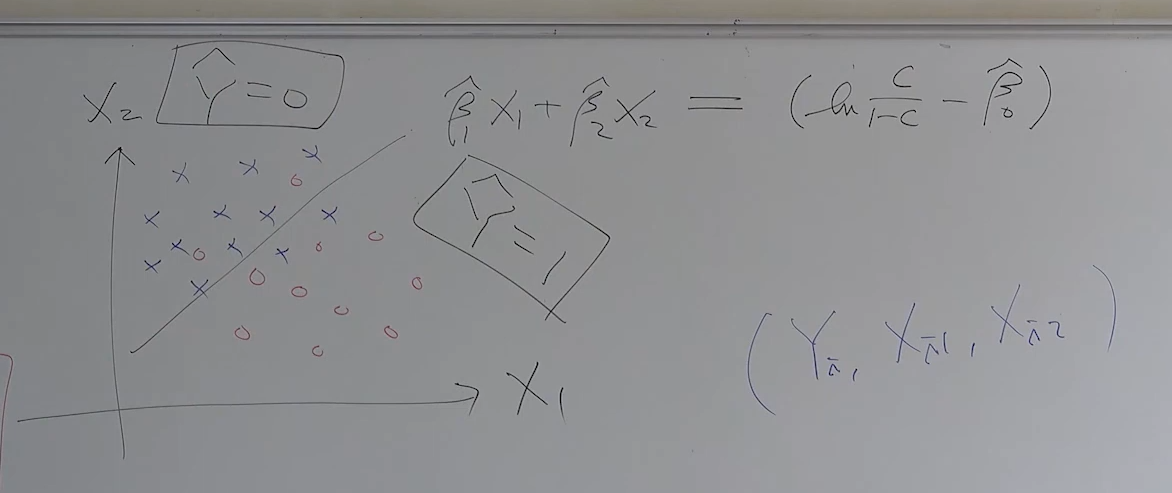 X₂
Ŷ = 0
β̂₁ X₁ + β̂₂ X₂ = (ln C/(1-C) - β̂₀)
Ŷ = 1
X₁
(Yᵢ, Xᵢ₁, Xᵢ₂)